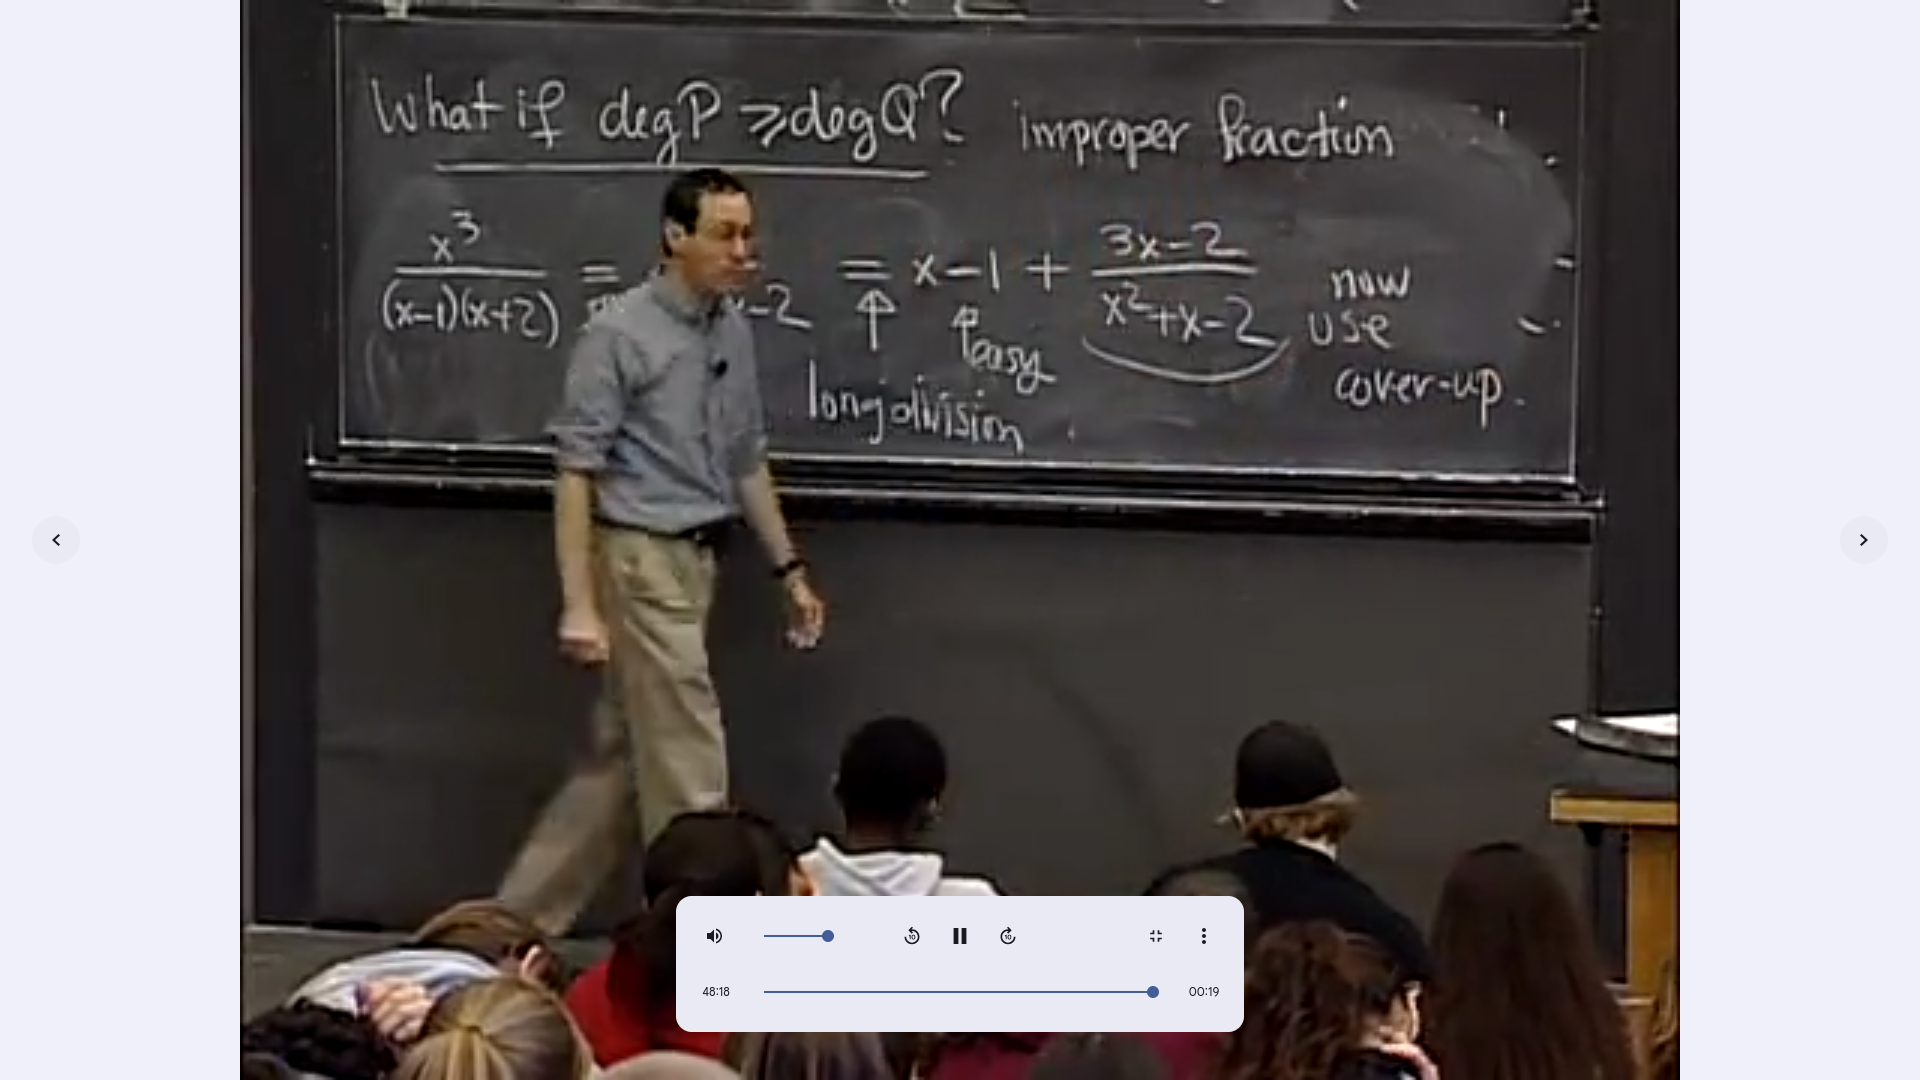 What if deg P ≥ deg Q? improper fraction
x³ / (x-1)(x+2) = x-2 = x-1 + 3x-2 / x²+x-2 now use cover-up.
easy
long division
10 10
48:18 00:19